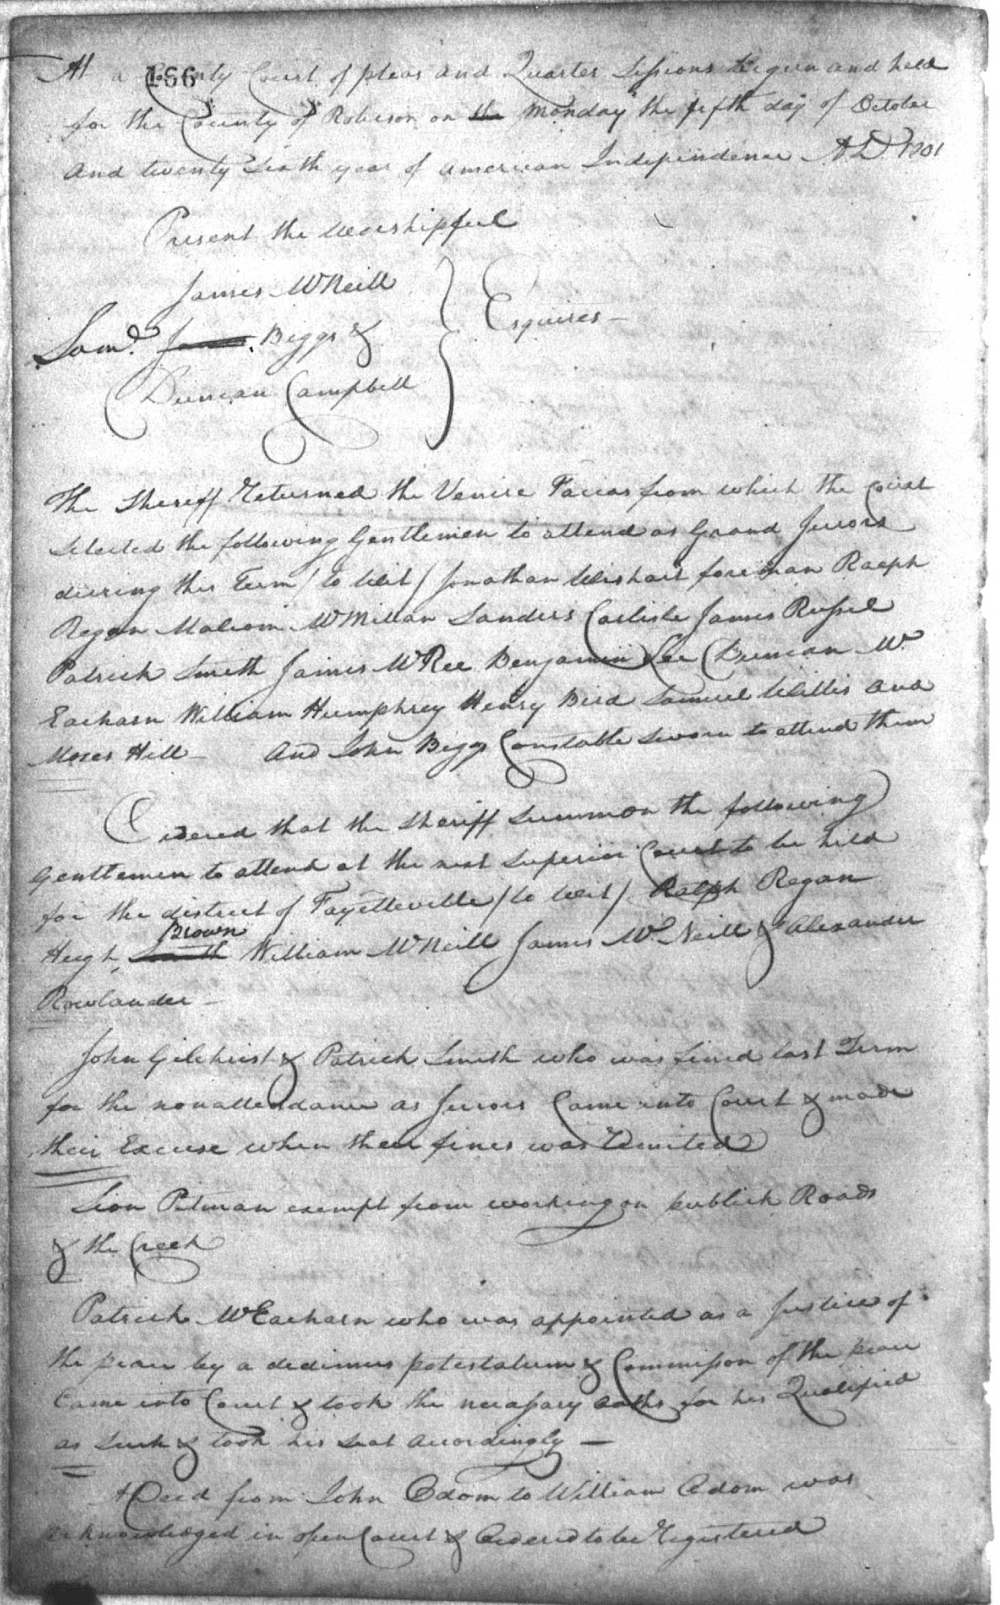 166
At a County Court of pleas and Quarter Sessions begun and held
for the County of Robeson on the monday the fifth day of October
and twenty Sixth year of american Independence AD 1801
Present the worshipful
James McNeill
Saml. James Biggs &
Esquires
Duncan Campbell
The Sheriff Returned the Venire Facias from which the Court
selected the following Gentlemen to attend as Grand Jurors
during this Term / to Wit / Jonathan Wishart foreman Ralph
Regan Malcom McMillan Sanders Carlisle James Russel
Patrick Smith James McRee Benjamin Lee Duncan Mc
Eacharn William Humphrey Henry Bird Samuel Willis and
Moses Hill And John Biggs Constable sworn to attend them
Ordered that the Sheriff Summon the following
Gentlemen to attend at the next Superior Court to be held
for the district of Fayetteville / to wit / Ralph Regan
Brown
Hugh Smith William McNeill James McNeill & Alexander
Rowlander
John Gilchrist & Patrick Smith who was fined last Term
for the nonattendance as Jurors Came into Court & made
their Excuse when their fines was Remited
Lion Pitman exempt from working on publick Roads
& the Creek
Patrick McEacharn who was appointed as a Justice of
the peace by a dedimus potestatum & Commission of the peace
Came into Court & took the necessary oaths for his Qualified
as such & took his seat accordingly
A Deed from John Odom to William Odom was
acknowledged in open Court & Ordered to be Registered